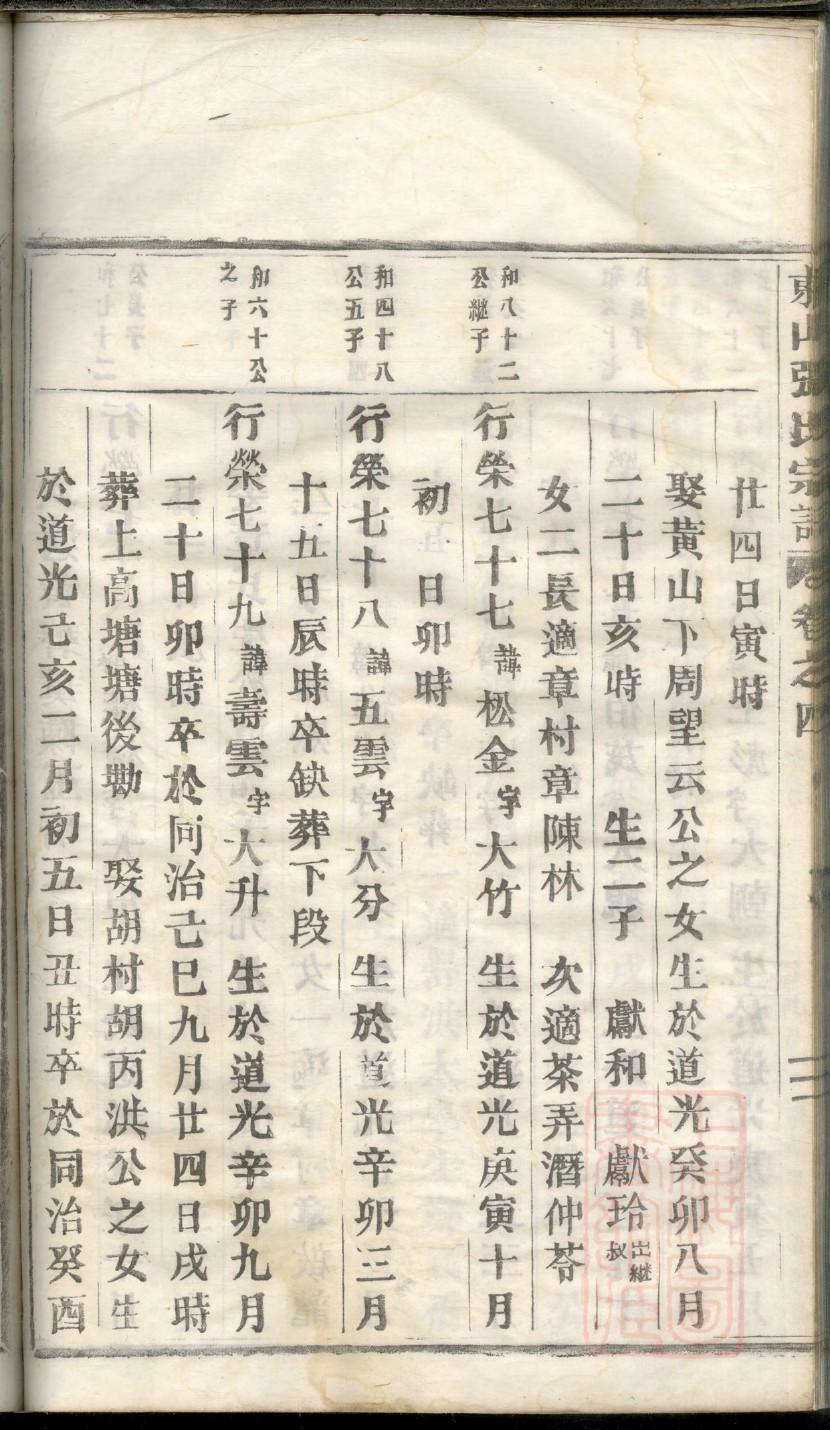 東山張氏宗譜 卷之四 二
廿四日寅時
娶黃山下周望云公之女生於道光癸卯八月
二十日亥時 生二子 獻和 獻玲 出繼叔
女二長適章村章陳林 次適茶弄潛仲苓
和八十二公繼子
行榮七十七諱松金字大竹 生於道光庚寅十月
初 日卯時
和四十八公五子
行榮七十八諱五雲字大分 生於道光辛卯三月
十五日辰時卒缺葬下段
和六十公之子
行榮七十九諱壽雲字大升 生於道光辛卯九月
二十日卯時卒於同治己巳九月廿四日戌時
葬上高塘塘後勘 娶胡村胡丙洪公之女生
於道光己亥二月初五日丑時卒於同治癸酉